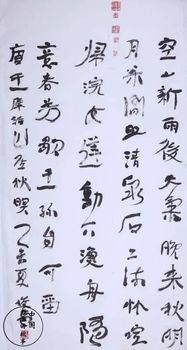 空山新雨後天氣晚來秋明
月松間照清泉石上流竹喧
歸浣女蓮動下漁舟隨
意春芳歇王孫自可留
唐王維詩山居秋暝